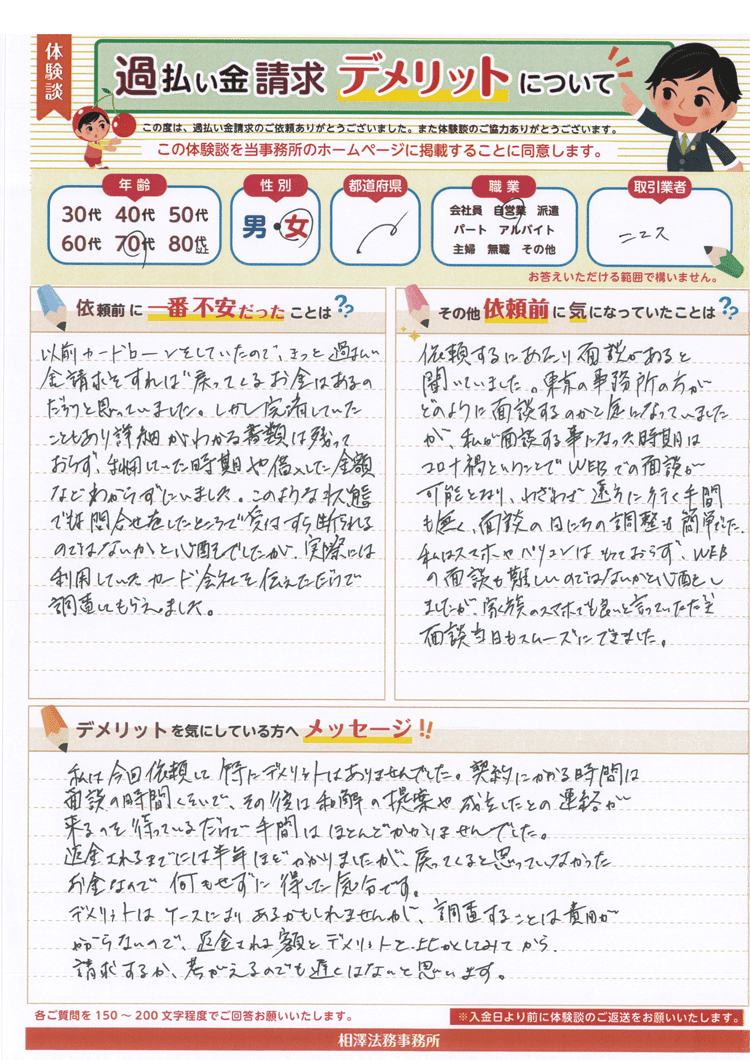 体験談
過払い金請求 デメリットについて
この度は、過払い金請求のご依頼ありがとうございました。また体験談のご協力ありがとうございます。
この体験談を当事務所のホームページに掲載することに同意します。
年齢
30代 40代 50代
60代 70代 80代以上
性別
男・女
都道府県
職業
会社員 自営業 派遣
パート アルバイト
主婦 無職 その他
取引業者
ニコス
お答えいただける範囲で構いません。
依頼前に一番不安だったことは??
以前カードローンをしていたので、きっと過払い
金請求をすれば戻ってくるお金はあるの
だろうと思っていました。しかし完済していた
こともあり詳細がわかる書類は残って
おらず、利用していた時期や借入した金額
などわからずにいました。このような状態
では問合せをしたところで受けすら断られる
のではないかと心配でしたが、実際には
利用していたカード会社を伝えただけで
調査してもらえました。
その他依頼前に気になっていたことは??
依頼するにあたり面談があると
聞いていました。東京の事務所の方が
どのように面談するのかと気になっていました
が、私が面談する事になった時期は
コロナ禍ということでWEBでの面談が
可能となり、わざわざ遠方に行く手間
も無く、面談の日にちの調整も簡単でした。
私はスマホやパソコンはもっておらず、WEB
の面談も難しいのではないかと心配をし
ましたが、家族のスマホでも良いと言っていただき
面談当日もスムーズにできました。
デメリットを気にしている方へメッセージ!!
私は今回依頼して特にデメリットはありませんでした。契約にかかる時間は
面談の時間くらいで、その後は和解の提案や成立したとの連絡が
来るのを待っているだけで手間はほとんどかかりませんでした。
返金されるまでには半年ほどかかりましたが、戻ってくると思っていなかった
お金なので何もせずに得した気分です。
デメリットはケースによりあるかもしれませんが、調査することは費用が
かからないので、返金される額とデメリットと比かくしてみてから
請求するか、考がえるのでも遅くはないと思います。
各ご質問を150～200文字程度でご回答お願いいたします。
※入金日より前に体験談のご返送をお願いいたします。
相澤法務事務所